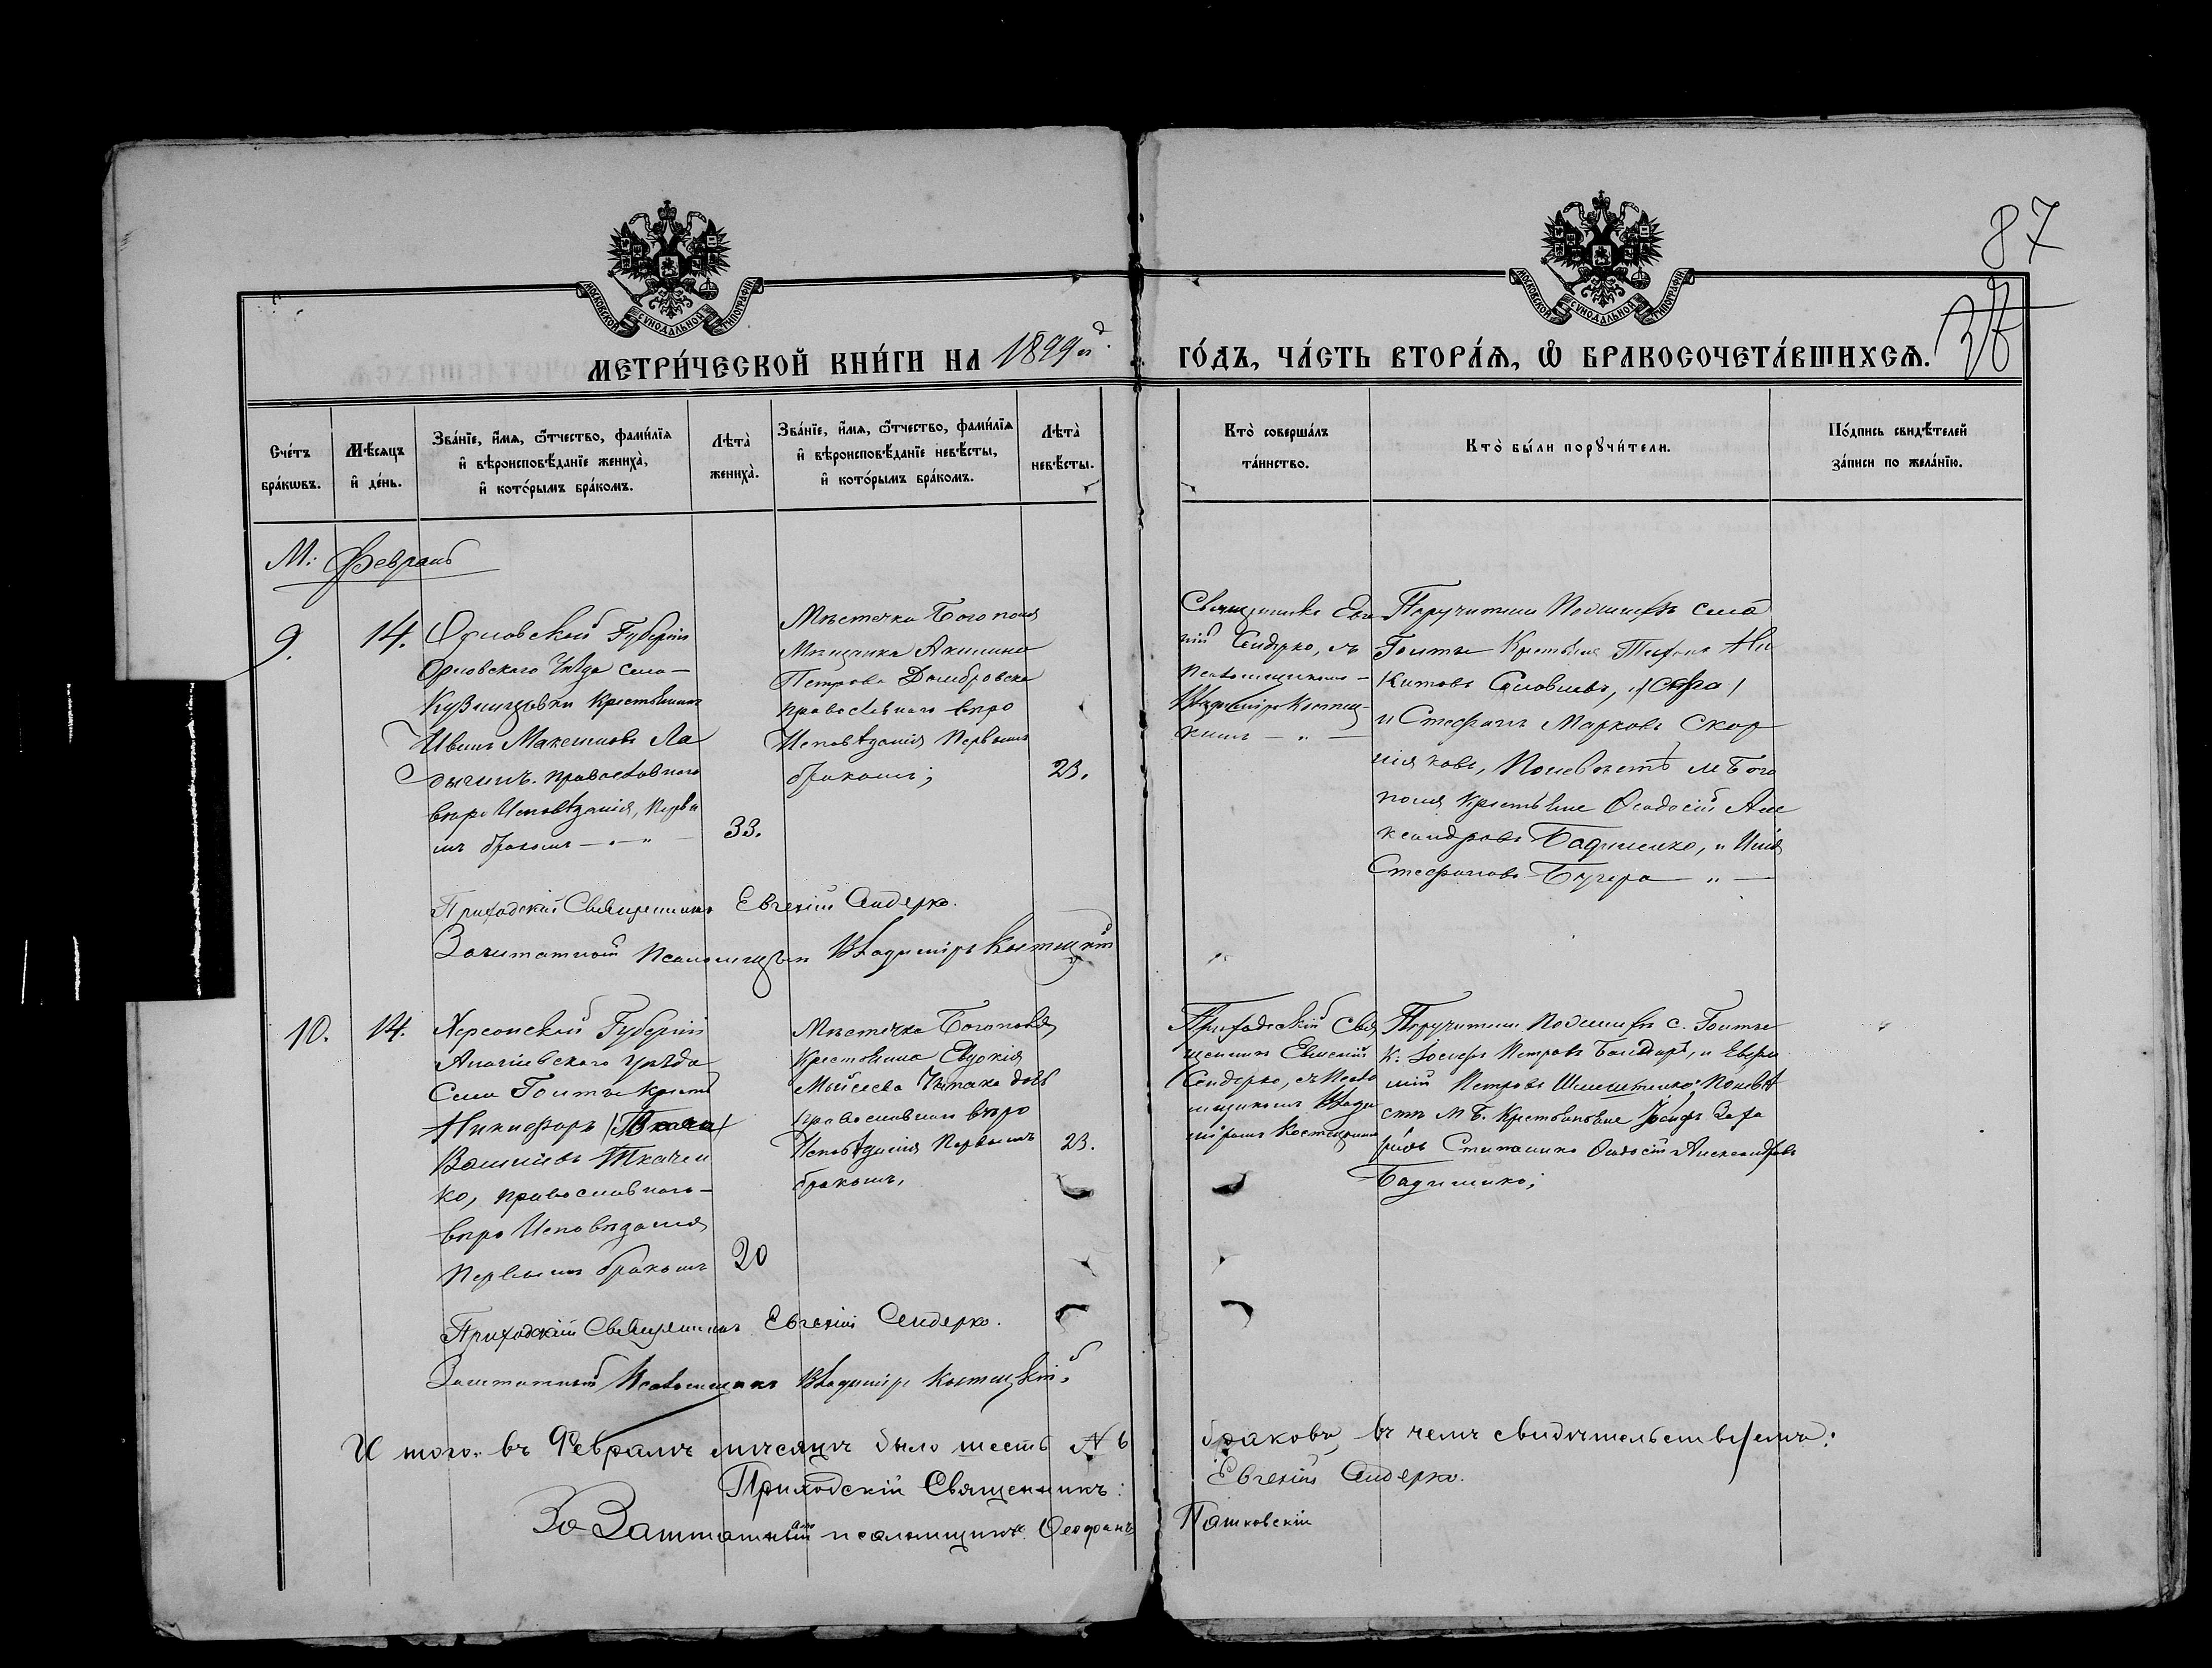 87
МОСКОВСКОЙ СѴНОДАЛЬНОЙ ТИПОГРАФІИ
МОСКОВСКОЙ СѴНОДАЛЬНОЙ ТИПОГРАФІИ
МЕТРИ́ЧЕСКОЙ КНИ́ГИ НА 1899й ГО́ДЪ, ЧА́СТЬ ВТОРА́Ѧ, Ѽ БРАКОСОЧЕТА́ВШИХСѦ.
Сче́тъ бра́кѡвъ.
Мѣ́сѧцъ и҆ де́нь.
Зва́нїе, и҆́мѧ, ѻ҆́тчество, фами́лїѧ
и҆ вѣроисповѣ́данїе жениха̀,
и҆ кото́рымъ бра́комъ.
Лѣта̀ жениха̀.
Зва́нїе, и҆́мѧ, ѻ҆́тчество, фами́лїѧ
и҆ вѣроисповѣ́данїе невѣ́сты,
и҆ кото́рымъ бра́комъ.
Лѣта̀ невѣ́сты.
Кто̀ соверша́лъ та́инство.
Кто̀ бы́ли порꙋчи́тели.
По́дпись свидѣ́телей за́писи по жела́нїю.
М: Февраль
9.
14.
Орловской Губерніи
Орловскаго Уѣзда села
Крестьянинъ
Иванъ Максимовъ Ла
дыгинъ. православнаго
вѣро Исповѣданія, Первы
мъ бракомъ — „ —
33.
Мѣстечка Богополя
Мѣщанка Акилина
Петрова Домбровска
православнаго вѣро
Исповѣданія Первымъ
бракомъ;
23.
Священникъ Евге
ній Сендерко, съ
Псаломщикомъ
Владиміромъ Костец
кимъ — „ —
Поручители По женихѣ села
Голты Крестьяне Ни
китовъ Соловьевъ,
и Стефанъ Марковъ Скор
няковъ, По невѣстѣ м Бого
поля Крестьяне Феодосій Але
ксандровъ Бадименко, и Илія
Стефановъ Бугера — „ —
Приходскій Священникъ Евгеній Сендерко.
Заштатный Псаломщикъ Владиміръ Костецкій
10.
14.
Херсонской Губерніи
Ананьевскаго уѣзда
Села Голты Крест
Никифоръ
Васильевъ Ткачен
ко, православнаго
вѣро Исповѣданія
Первымъ бракомъ
20
Мѣстечка Богополя,
Крестьянка Евдокія
Моисеева
православнаго вѣро
Исповѣданія Первымъ
бракомъ,
23.
Приходскій Свя
щенникъ Евгеній
Сендерко, съ Псало
мщикомъ Влади
міромъ Костецкимъ
Поручители По женихѣ с. Голты
к: Іосифъ Петровъ Бондарь, и Евфи
мій Петровъ По невѣ
стѣ м Б. Крестьяне Іосифъ Заха
ріевъ Феодосій Александровъ
Бадименко;
Приходскій Священникъ Евгеній Сендерко.
Заштатный Псаломщикъ Владиміръ Костецкій.
И того въ Февралѣ мѣсяцѣ было шесть № 6 браковъ, въ чемъ свидѣтельствуемъ:
Приходскій Священникъ: Евгеній Сендерко.
За Заштатнаго псаломщика Феофанъ Пашковскій